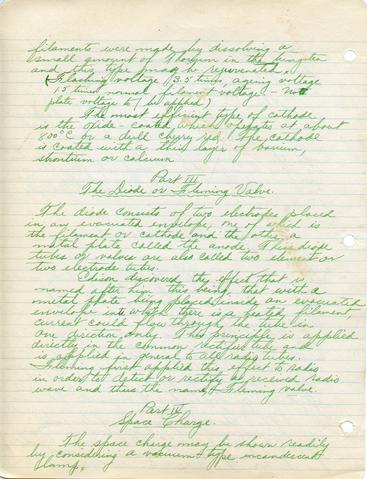 filaments were made by dissolving a
small amount of thorium in the tungsten
and this type may be rejuvenated.
(Flashing voltage 3.5 times, ageing voltage
1.5 times normal filament voltage - No
plate voltage to be applied)
The most efficient type of cathode
is the oxide-coated which operates at about
800°C or a dull cherry red. The cathode
is coated with a thin layer of barium,
strontium or calcium
Part III
The Diode or Fleming Valve.
The diode consists of two electrodes placed
in an evacuated envelope, one of which is
the filament or cathode and the other a
metal plate called the anode. These diode
tubes or valves are also called two element or
two electrode tubes.
Edison discovered the effect that is
named after him, this being that with a
metal plate being placed inside an evacuated
envelope in which there is a heated filament,
current could flow through the tube in
one direction only. This principle is applied
directly in the common rectifier tube and
is applied in general to all radio tubes.
Fleming first applied this effect to radio
in order to detect or rectify a received radio
wave and thus the name Fleming valve.
Part IV
Space Charge.
The space charge may be shown readily
by considering a vacuum type incandescent
lamp,